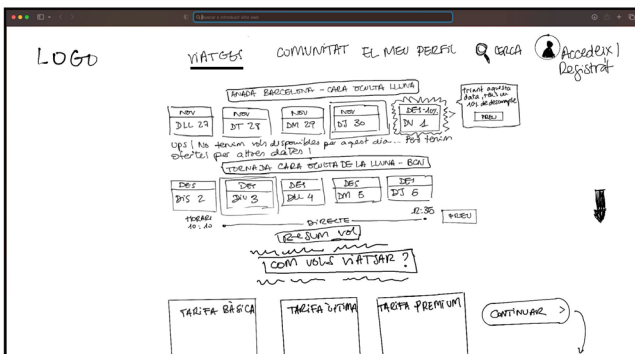 Buscar o introducir sitio web
LOGO
VIATGES
COMUNITAT
EL MEU PERFIL
CERCA
Accedeix |
Registra't
ANADA BARCELONA - CARA OCULTA LLUNA
NOV
DLL 27
NOV
DT 28
NOV
DM 29
NOV
DJ 30
DES -10%
DV 1
Triant aquesta
data, tens un
10% de descompte
PREU
Ups! No tenim vols disponibles per aquest dia... Però tenim
ofertes per altres dates!
TORNADA CARA OCULTA DE LA LLUNA - BCN
DES
DiS 2
DES
Diu 3
DES
DLL 4
DES
DM 5
DES
DJ 6
HORARI
10:10
DIRECTE
12:35
PREU
RESUM VOL
COM VOLS VIATJAR ?
TARIFA BÀSICA
TARIFA ÒPTIMA
TARIFA PREMIUM
CONTINUAR >